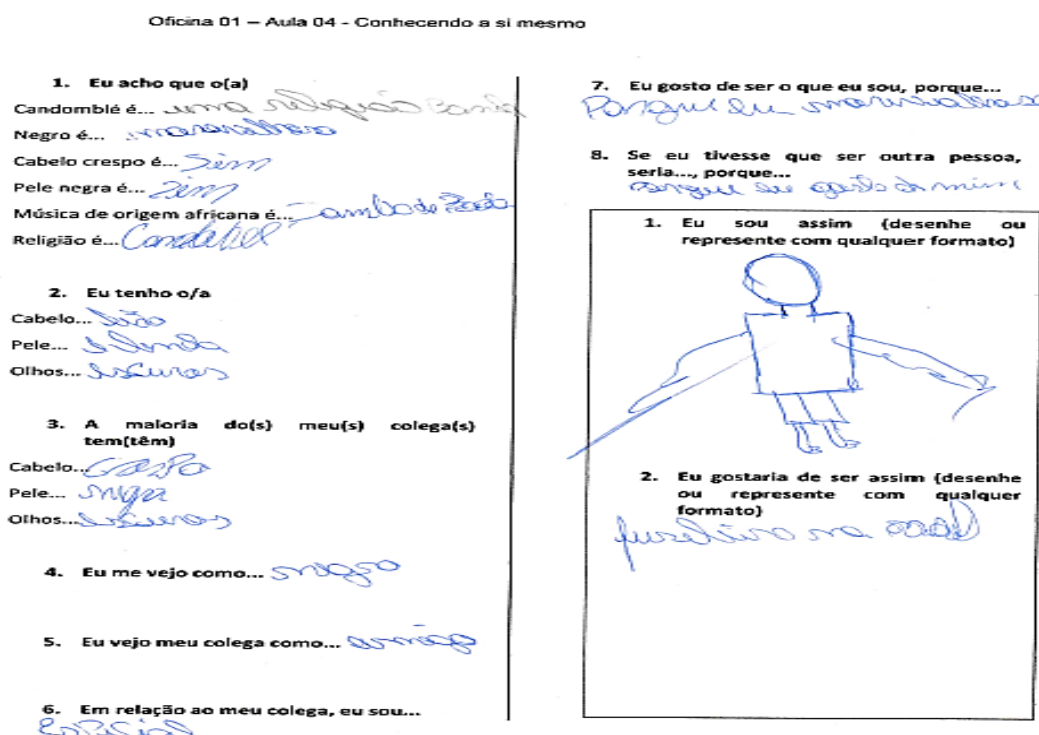 Oficina 01 – Aula 04 - Conhecendo a si mesmo
1. Eu acho que o(a)
Candomblé é... uma religião
Negro é... maravilhoso
Cabelo crespo é... Sim
Pele negra é... Sim
Música de origem africana é... Samba de
Religião é...
2. Eu tenho o/a
Cabelo...
Pele...
Olhos... escuros
3. A maioria do(s) meu(s) colega(s)
tem(têm)
Cabelo...
Pele... negra
Olhos... escuros
4. Eu me vejo como... negro
5. Eu vejo meu colega como... amigo
6. Em relação ao meu colega, eu sou...
Especial
7. Eu gosto de ser o que eu sou, porque...
Porque eu
8. Se eu tivesse que ser outra pessoa,
seria..., porque...
porque eu gosto de mim
1. Eu sou assim (desenhe ou
represente com qualquer formato)
2. Eu gostaria de ser assim (desenhe
ou represente com qualquer
formato)